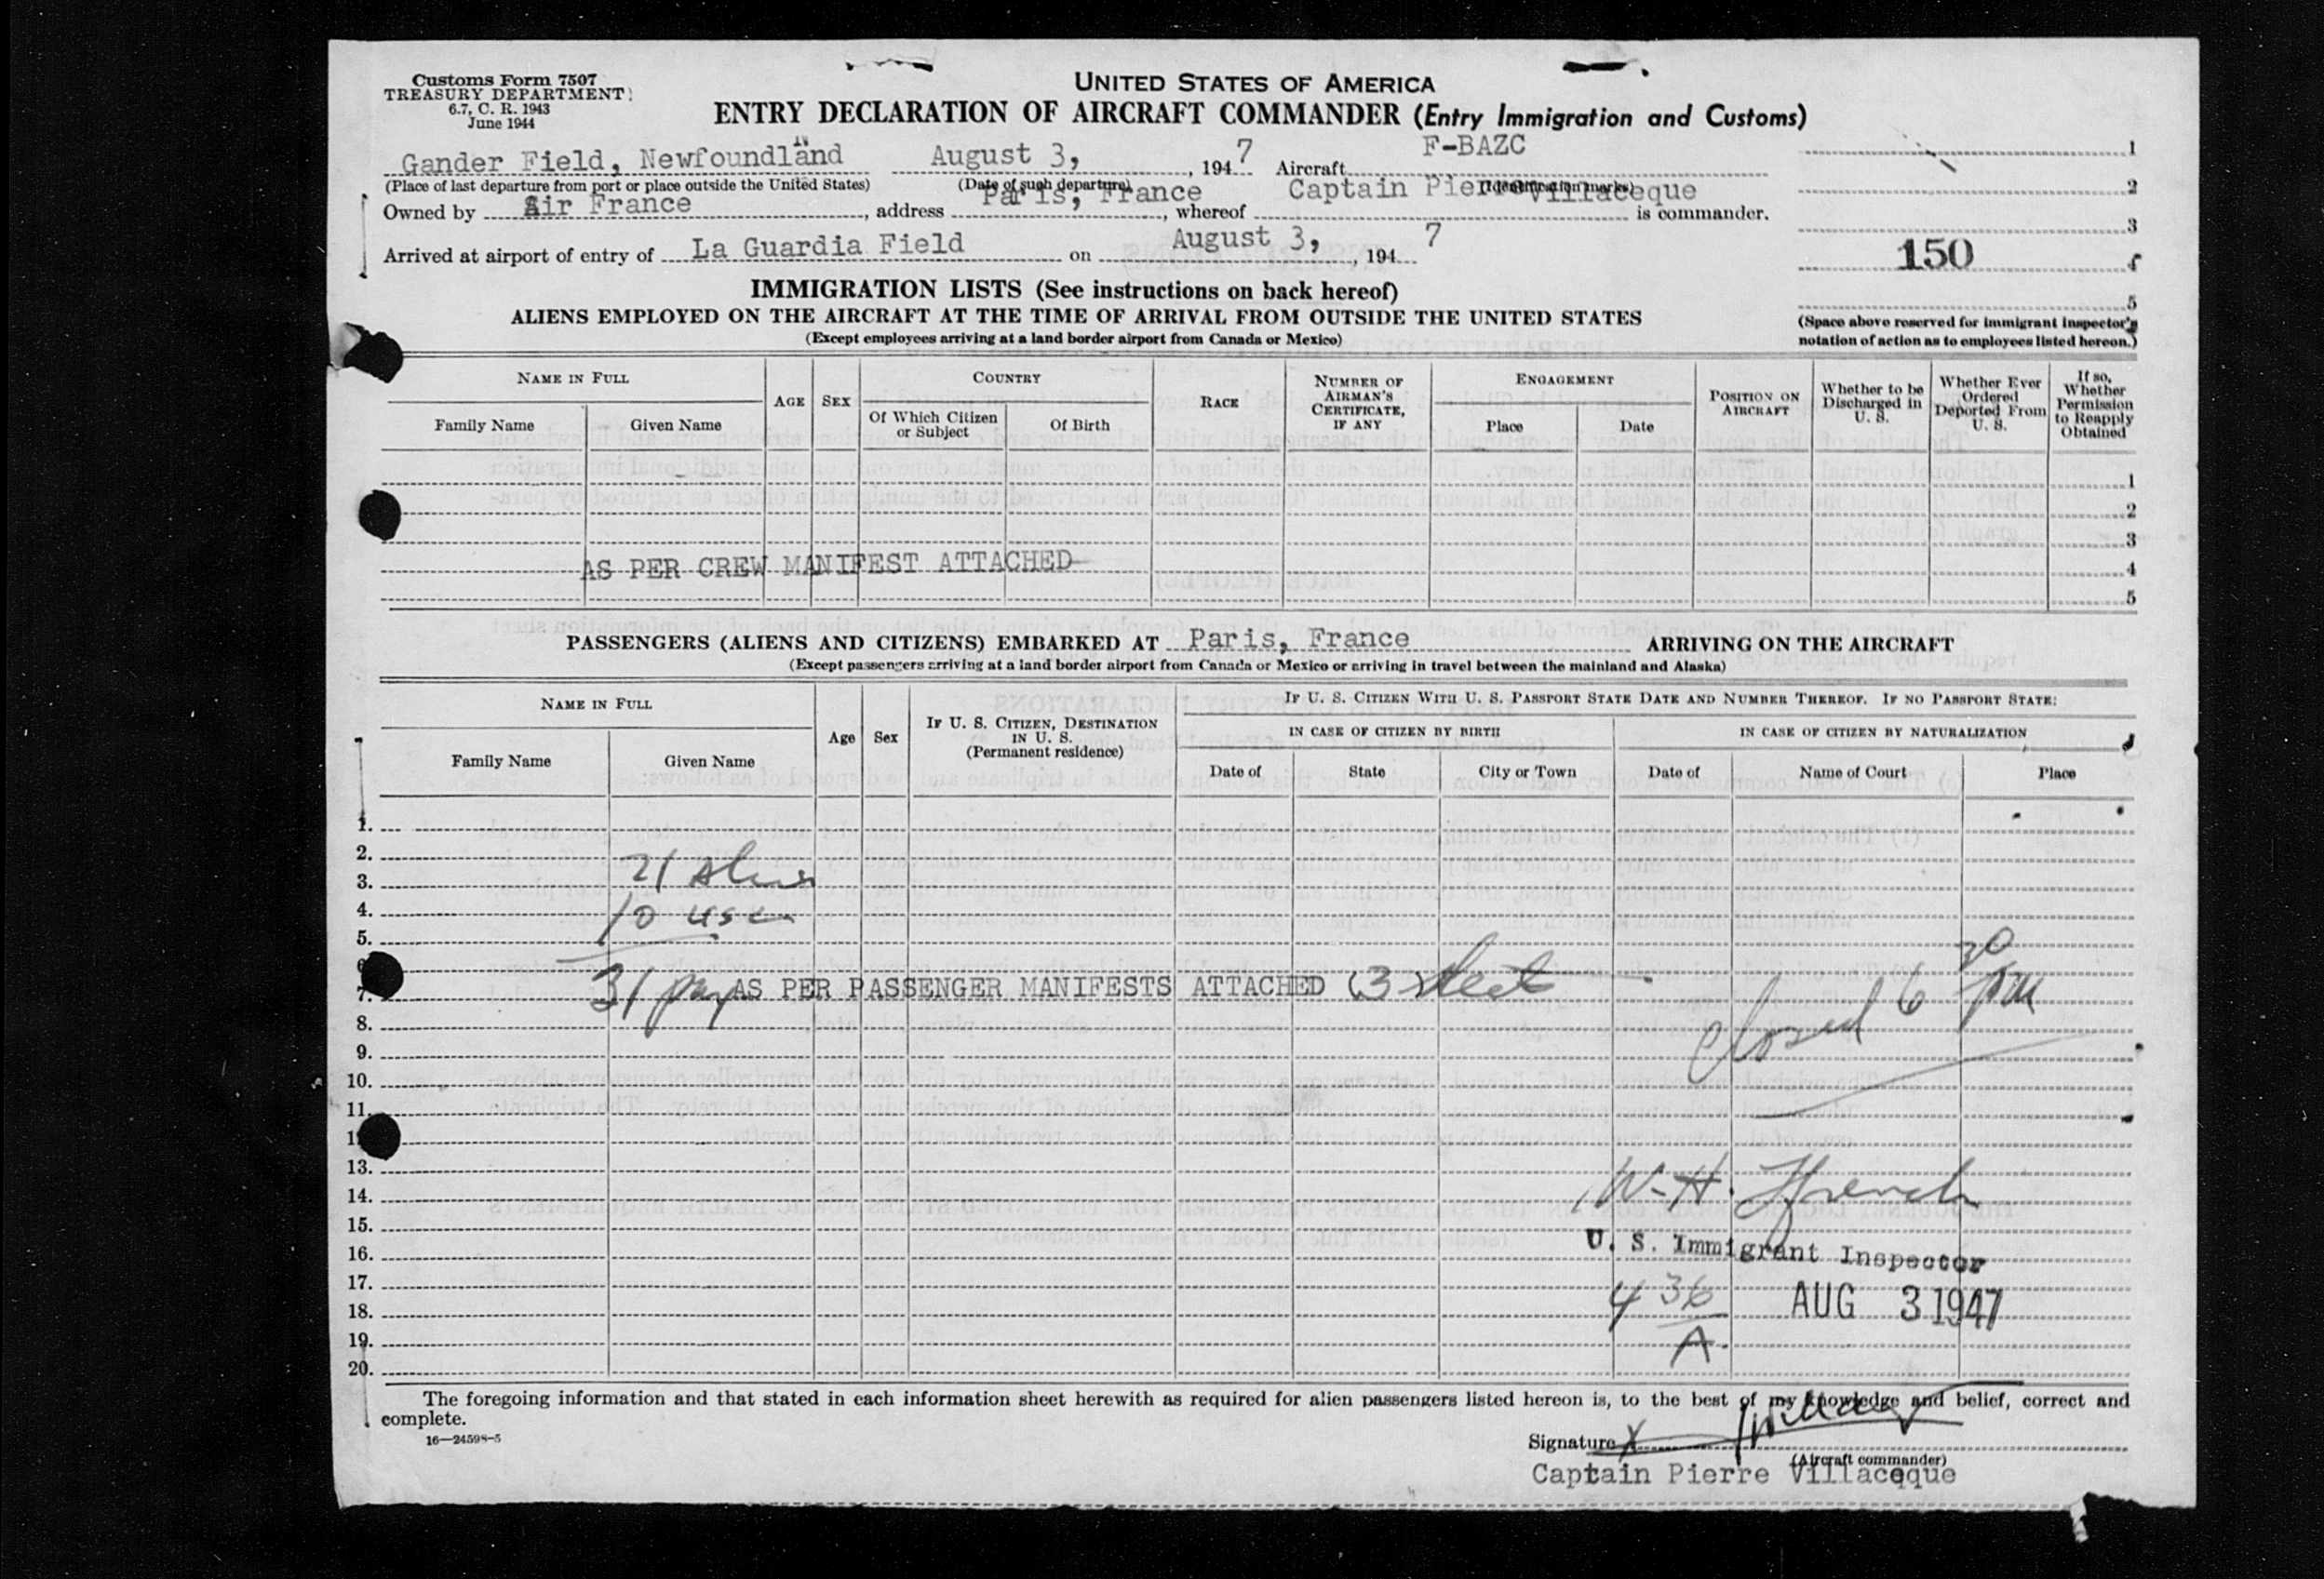 Customs Form 7507
TREASURY DEPARTMENT
6.7, C. R. 1943
June 1944
UNITED STATES OF AMERICA
ENTRY DECLARATION OF AIRCRAFT COMMANDER (Entry Immigration and Customs)
Gander Field, Newfoundland August 3, , 1947 Aircraft F-BAZC
(Place of last departure from port or place outside the United States) (Date of such departure) (Identification marks)
Owned by Air France , address Paris, France , whereof Captain Pierre Villaceque is commander.
Arrived at airport of entry of La Guardia Field on August 3, , 1947
1
2
3
150 4
5
(Space above reserved for immigrant inspector's
notation of action as to employees listed hereon.)
IMMIGRATION LISTS (See instructions on back hereof)
ALIENS EMPLOYED ON THE AIRCRAFT AT THE TIME OF ARRIVAL FROM OUTSIDE THE UNITED STATES
(Except employees arriving at a land border airport from Canada or Mexico)
NAME IN FULL
Family Name
Given Name
AGE
SEX
COUNTRY
Of Which Citizen
or Subject
Of Birth
RACE
NUMBER OF
AIRMAN'S
CERTIFICATE,
IF ANY
ENGAGEMENT
Place
Date
POSITION ON
AIRCRAFT
Whether to be
Discharged in
U. S.
Whether Ever
Ordered
Deported From
U. S.
If so,
Whether
Permission
to Reapply
Obtained
1
2
3
AS PER CREW MANIFEST ATTACHED 4
5
PASSENGERS (ALIENS AND CITIZENS) EMBARKED AT Paris, France ARRIVING ON THE AIRCRAFT
(Except passengers arriving at a land border airport from Canada or Mexico or arriving in travel between the mainland and Alaska)
NAME IN FULL
Family Name
Given Name
Age
Sex
IF U. S. CITIZEN, DESTINATION
IN U. S.
(Permanent residence)
IF U. S. CITIZEN WITH U. S. PASSPORT STATE DATE AND NUMBER THEREOF. IF NO PASSPORT STATE:
IN CASE OF CITIZEN BY BIRTH
Date of
State
City or Town
IN CASE OF CITIZEN BY NATURALIZATION
Date of
Name of Court
Place
1.
2.
3. 21 Aliens
4. 10 USC
5.
6
7. 31 pax AS PER PASSENGER MANIFESTS ATTACHED (3 sheets
closed 6 30 pm
8.
9.
10.
11.
12
13.
14. W. H. French
15.
16. U. S. Immigrant Inspector
17.
18. 4 36 AUG 3 1947
19. A.
20.
The foregoing information and that stated in each information sheet herewith as required for alien passengers listed hereon is, to the best of my knowledge and belief, correct and
complete.
16—24598-5
Signature X
(Aircraft commander)
Captain Pierre Villaceque